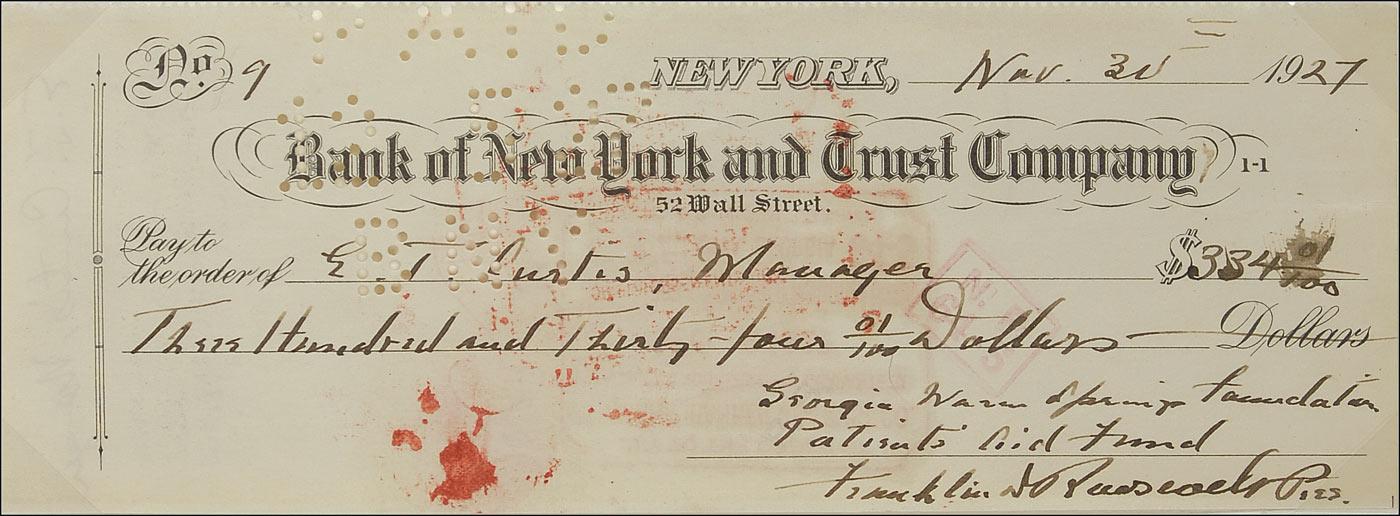 No. 9
NEW YORK, Nov. 30 1927
Bank of New York and Trust Company 1-1
52 Wall Street.
Pay to
the order of E. T. Curtis, Manager $334 01/100
Three Hundred and Thirty-four 01/100 Dollars Dollars
Georgia Warm Springs Foundation
Patients' Aid Fund
Franklin D Roosevelt Pres.